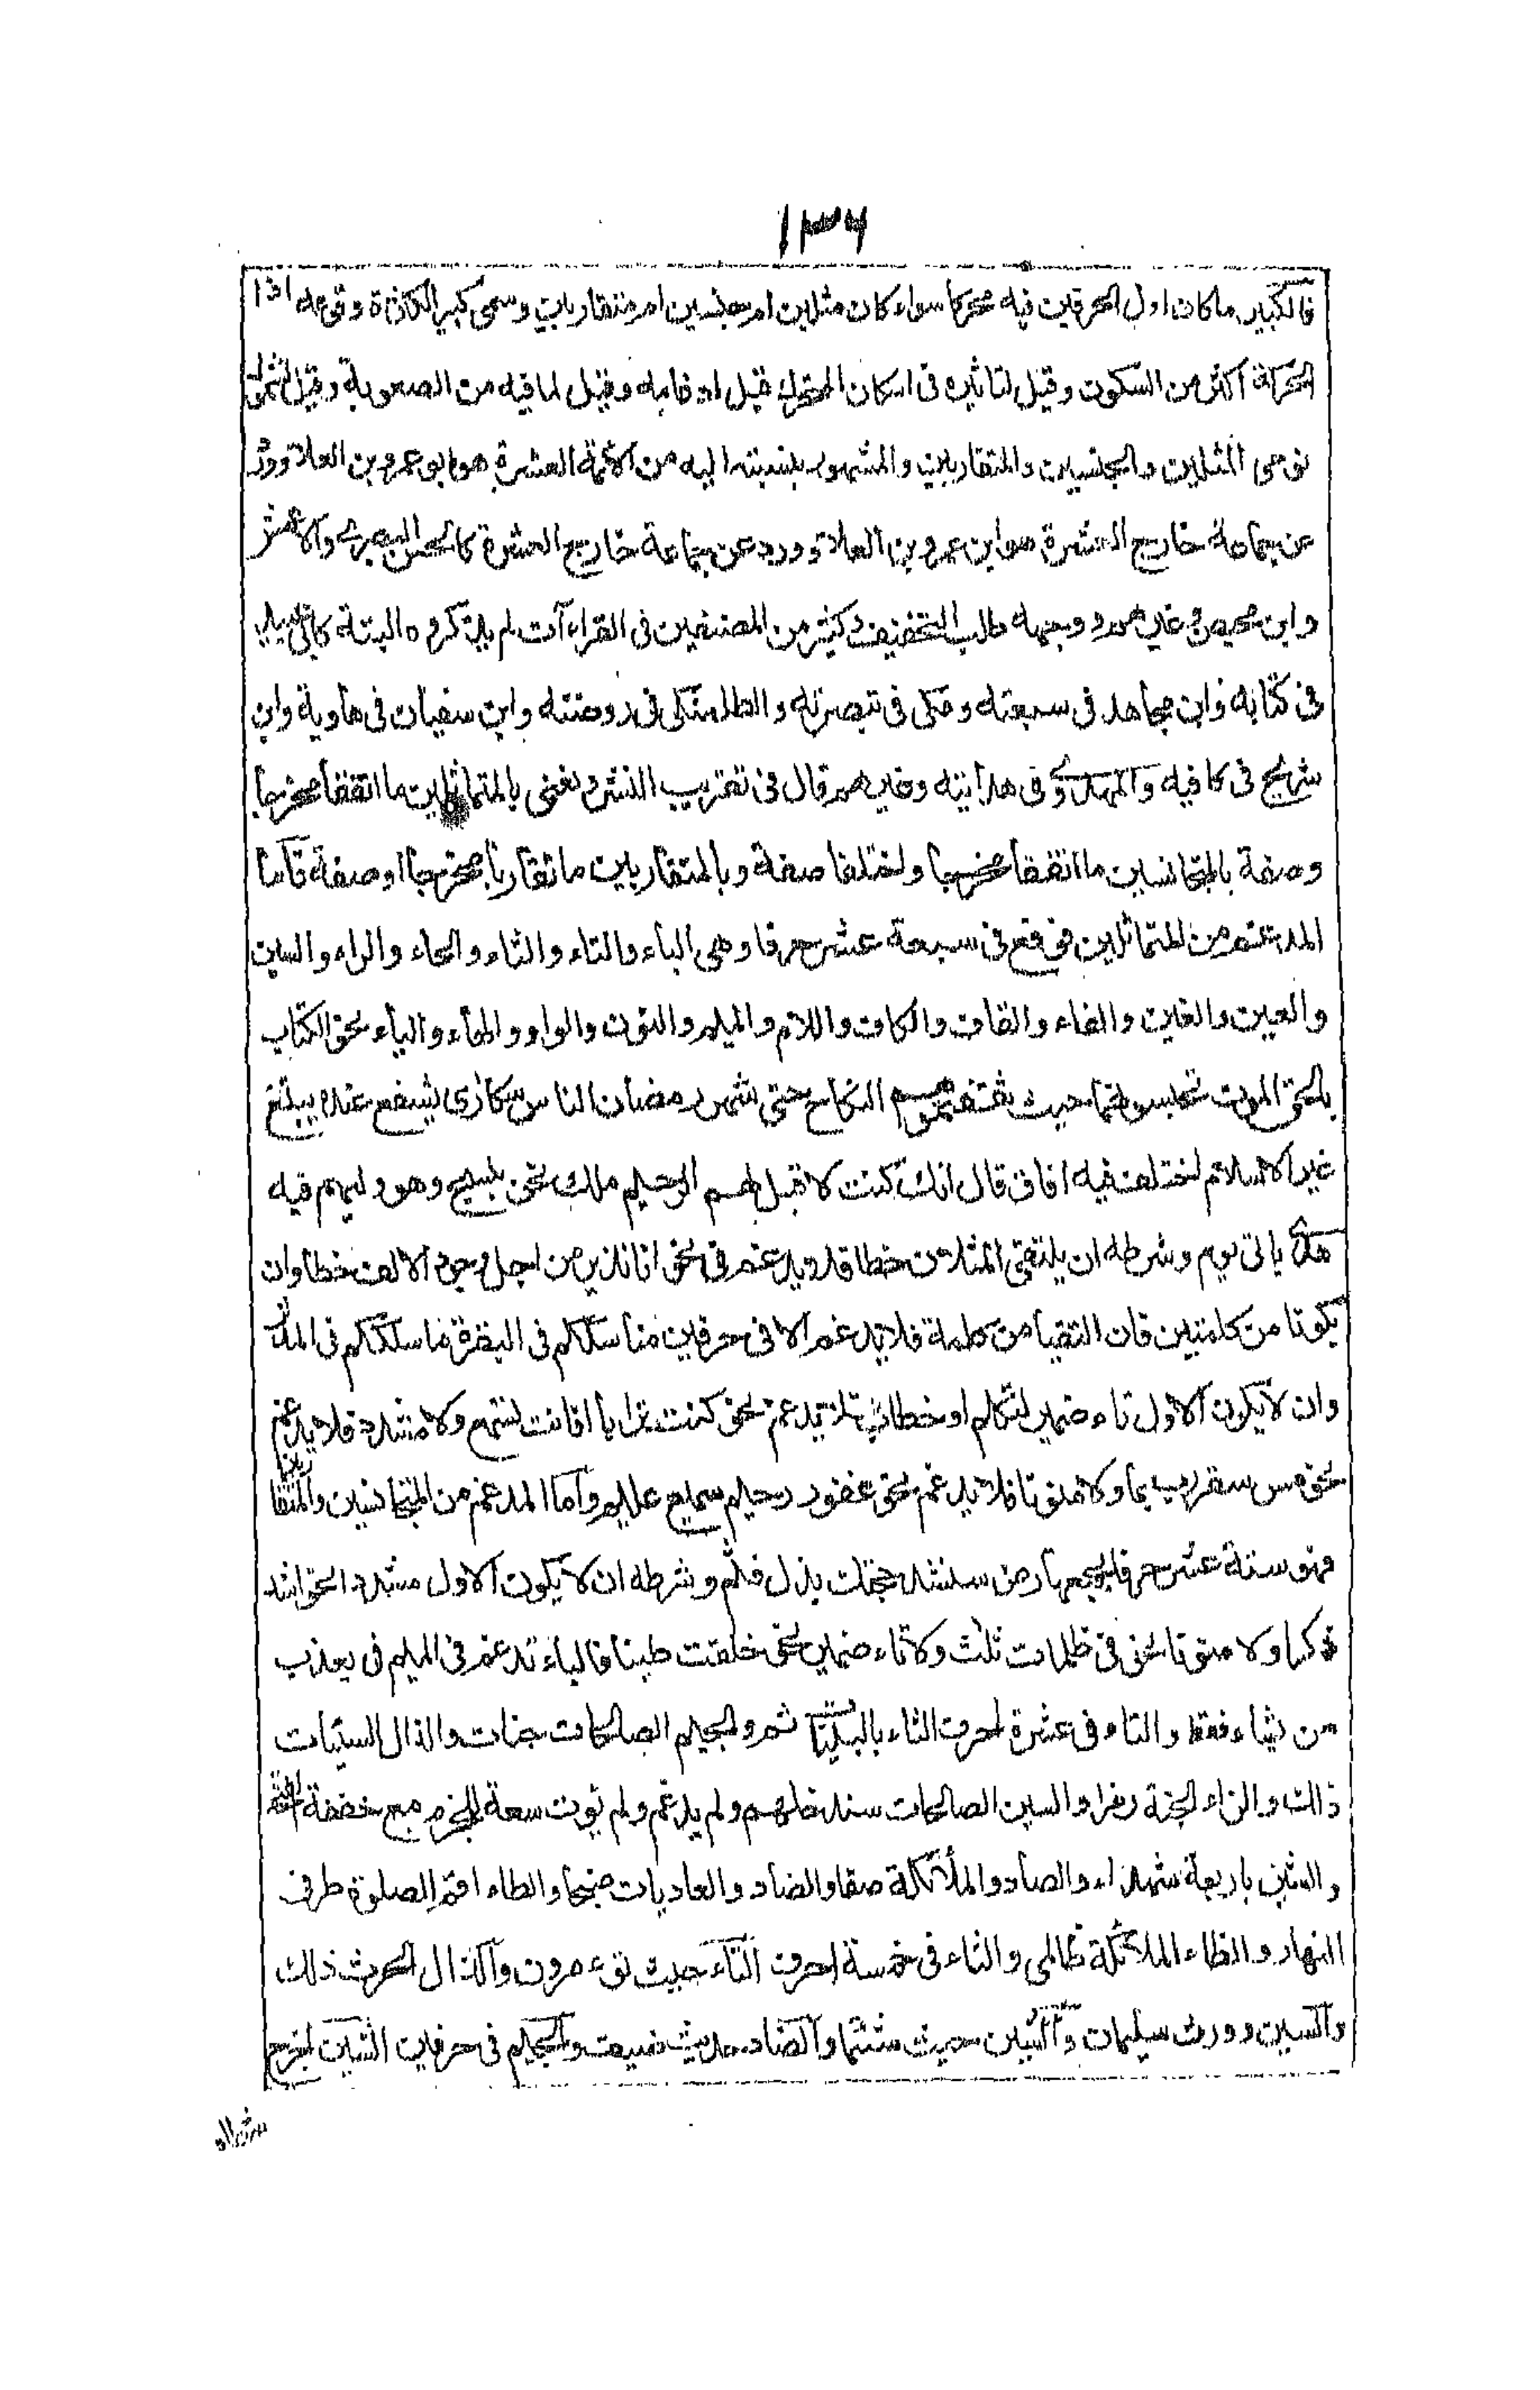 ١٣٦
فالكبير ما كان اول الحرفين فيه محركا سواء كان مثلين ام جنسين ام متقاربين وسمى كبير الكثرة وقوعه اذا
الحركة اكثر من السكون وقيل لتاثيره فى اسكان المتحرك قبل ادغامه وقيل لما فيه من الصعوبة وقيل لشموله
نوعى المثلين والجنسين والمتقاربين والمشهور بنسبته اليه من الأئمة العشرة هو ابو عمرو بن العلاء وورد
عن جماعة خارج العشرة هو ابن عمرو بن العلاء وورد عن جماعة خارج العشرة كالحسن البصرى والاعمش
وابن محيصن وغيرهم ووجهه طلب التخفيف وكثير من المصنفين فى القراآت لم يذكروه البتة كابى عبيد
فى كتابه وابن مجاهد فى سبعته ومكى فى تبصرته والطلمنكى فى روضته وابن سفيان فى هاوية وابن
شريح فى كافيه والمهدوى فى هدايته وغيرهم قال فى تقريب النشر ونعنى بالمتماثلين ما اتفقا مخرجا
وصفة بالمتجانسين ما اتفقا مخرجا واختلفا صفة وبالمتقاربين ما تقاربا مخرجا او صفة فاما
المدغم من المتماثلين فوقع فى سبعة عشر حرفا وهى الباء والتاء والثاء والحاء والراء والسين
والعين والغين والفاء والقاف والكاف واللام والميم والنون والواو والهاء والياء نحو الكتاب
بالحق الموت تحبسونهما حيث ثقفتموهم النكاح حتى شهر رمضان الناس سكارى يشفع عنده يبتغ
غير الاسلام اختلف فيه افاق قال انك كنت لا قبل لهم الرحيم ملك نحن نسبح وهو وليهم فيه
هدى ياتى يوم وشرطه ان يلتقى المثلان خطا فلا يدغم فى نحو انا نذير من اجل وجود الالف خطا وان
يكونا من كلمتين فان التقيا من كلمة فلا يدغم الا فى حرفين مناسككم فى البقرة ما سلككم فى المدثر
وان لا يكون الاول تاء ضمير لمتكلم او خطابٍ فلا يدغم نحو كنت ترابا افانت تسمع ولا مشددا فلا يدغم
نحو مس سقر رب بما ولا منونا فلا يدغم نحو غفور رحيم سميع عليم واما المدغم من المتجانسين والمتقاربين
فهو ستة عشر حرفا يجمعها رض سنشد حجتك بذل قثم وشرطه ان لا يكون الاول مشددا نحو اشد
ذكرا ولا منونا نحو فى ظلمات ثلث ولا تاء ضمير نحو خلقت طينا فالباء تدغم فى الميم فى يعذب
من يشاء فقط والتاء فى عشرة احرف الثاء بالبينات ثم والجيم الصالحات جنات والذال السيئات
ذلك والزاء الجنة زمرا والسين الصالحات سندخلهم ولم يدغم ولم يؤت سعة للجزم مع خفة الفتحة
والشين باربعة شهداء والصاد والملائكة صفا والضاد والعاديات ضبحا والطاء اقم الصلوة طرفى
النهار والظاء الملائكة ظالمى والثاء فى خمسة احرف التاء حيث تؤمرون والذال الحرث ذلك
والسين وورث سليمان والشين حيث شئتما والضاد حديث ضيف والجيم فى حرفين الشين اخرج
شطاه